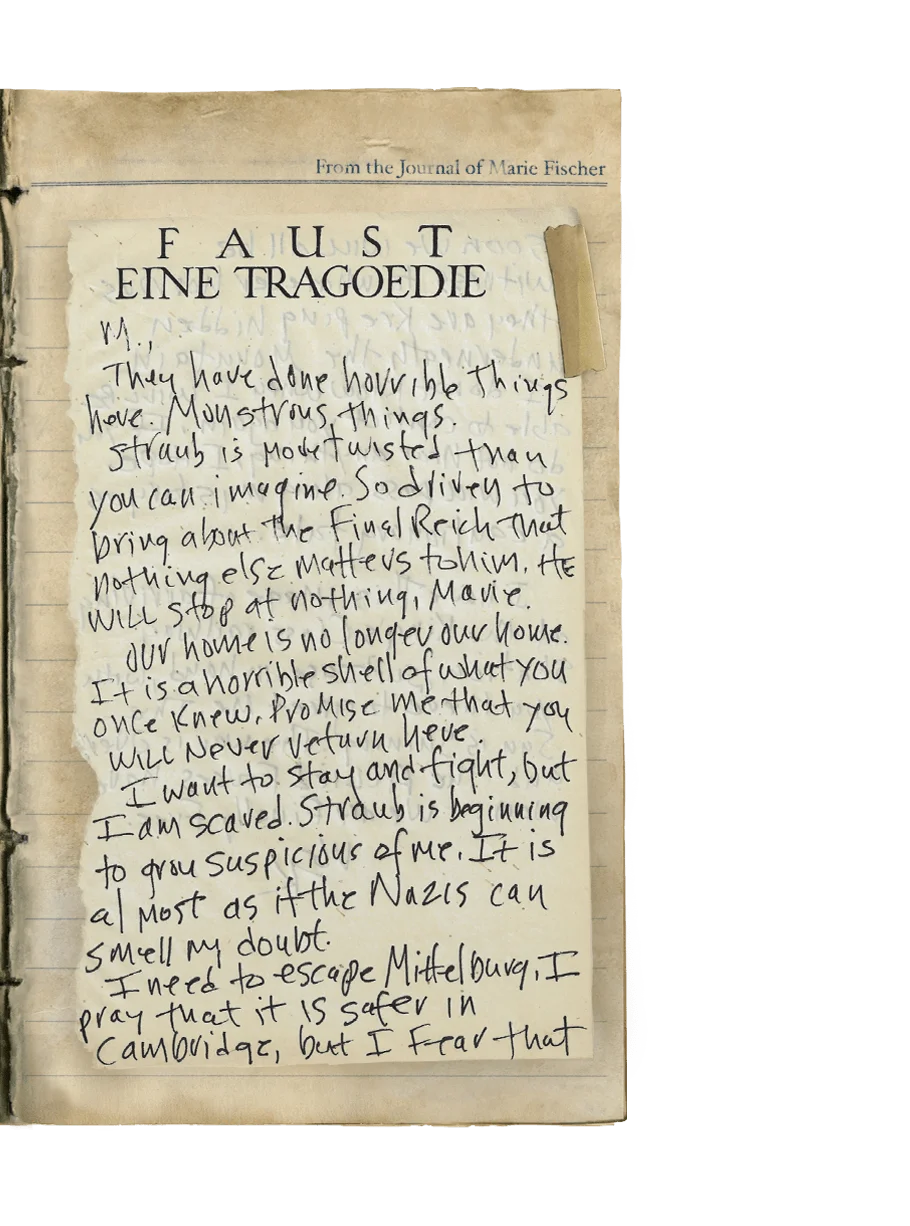 From the Journal of Marie Fischer
FAUST
EINE TRAGOEDIE
M.,
They have done horrible things
here. Monstrous things.
Straub is more twisted than
you can imagine. So driven to
bring about the Final Reich that
nothing else matters to him. He
will stop at nothing, Marie.
Our home is no longer our home.
It is a horrible shell of what you
once knew. Promise me that you
will never return here.
I want to stay and fight, but
I am scared. Straub is beginning
to grow suspicious of me. It is
almost as if the Nazis can
smell my doubt.
I need to escape Mittelburg. I
pray that it is safer in
Cambridge, but I fear that